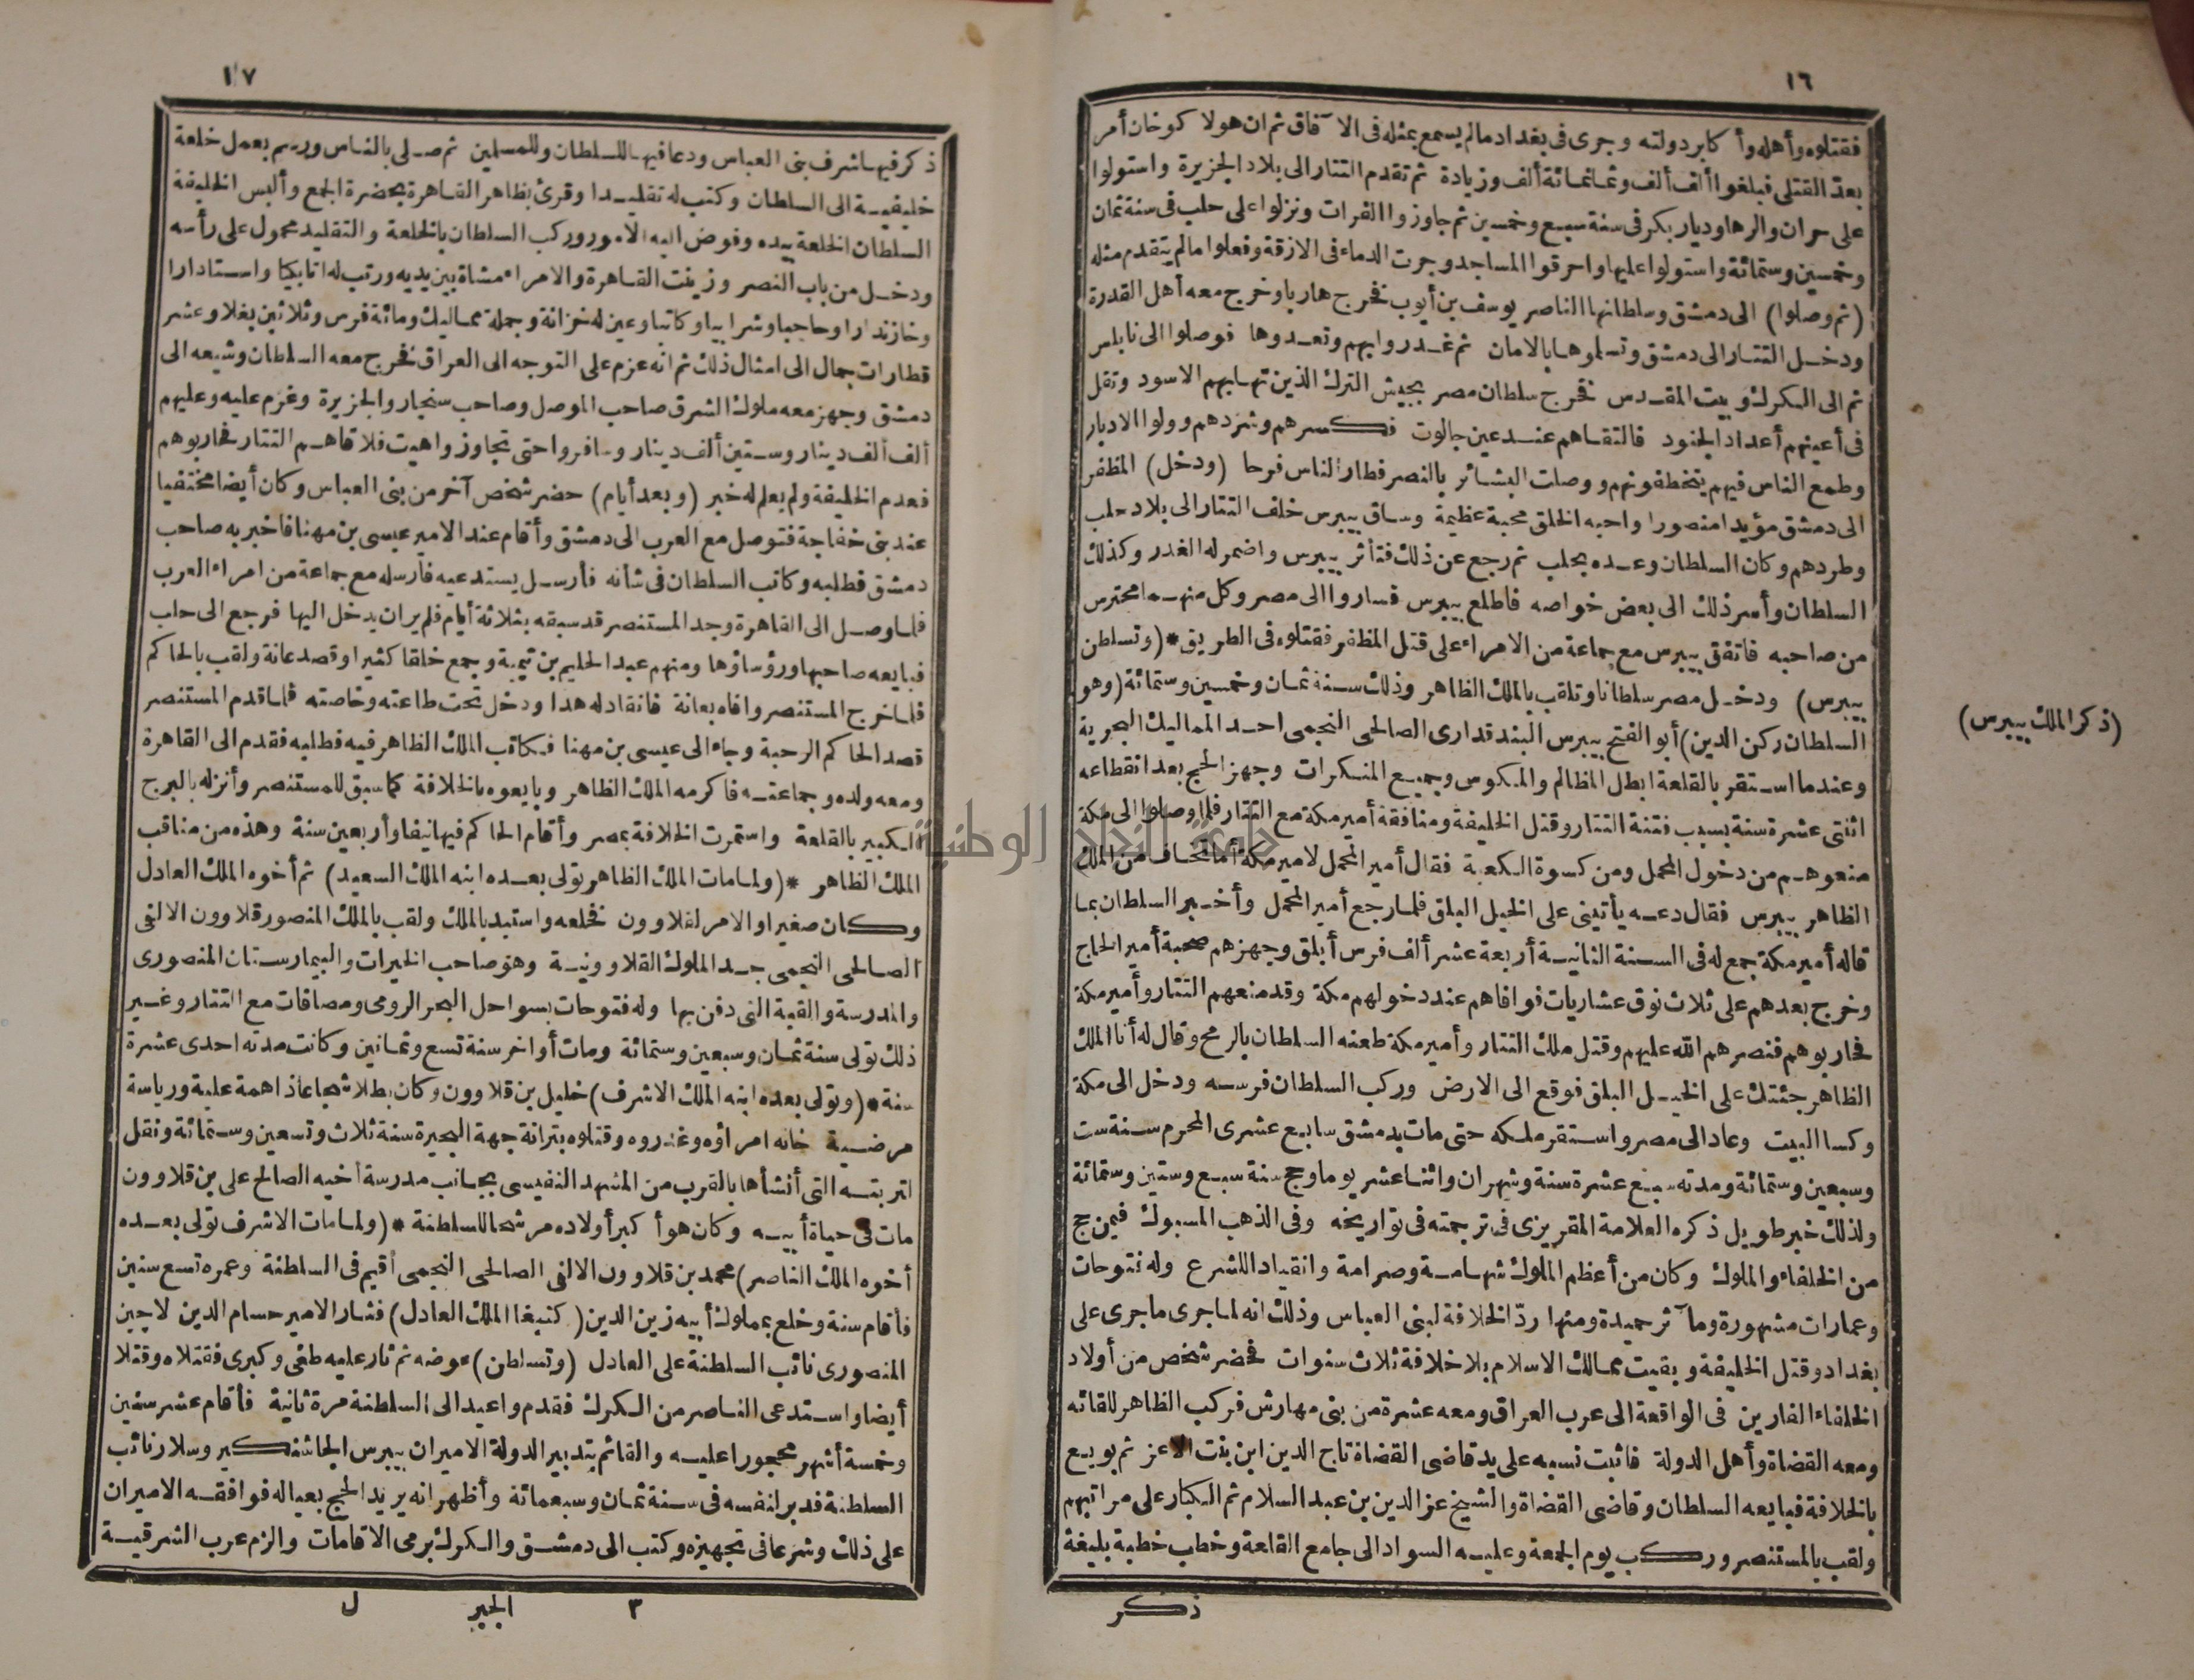 ١٦
فقتلوه وأهله وأكابر دولته وجرى فى بغداد مالم يسمع بمثله فى الآفاق ثم ان هولاكوخان أمر
بعد القتلى فبلغوا ألف ألف وثمانمائة ألف وزيادة ثم تقدم التتار الى بلاد الجزيرة واستولوا
على حران والرها وديار بكر فى سنة سبع وخمسين ثم جاوزوا الفرات ونزلوا على حلب فى سنة ثمان
وخمسين وستمائة واستولوا عليها واحرقوا المساجد وجرت الدماء فى الازقة وفعلوا مالم يتقدم مثله
(ثم وصلوا) الى دمشق وسلطانها الناصر يوسف بن أيوب فخرج هاربا وخرج معه أهل القدرة
ودخل التتار الى دمشق وتسلموها بالامان ثم غدروا بهم وتعدوها فوصلوا الى نابلس
ثم الى الكرك وبيت المقدس فخرج سلطان مصر بجيش الترك الذين تهابهم الاسود وتقل
فى أعينهم أعداد الجنود فالتقاهم عند عين جالوت فكسرهم وشردهم وولوا الادبار
وطمع الناس فيهم يتخطفونهم ووصلت البشائر بالنصر فطار الناس فرحا (ودخل) المظفر
الى دمشق مؤيدا منصورا واحبه الخلق محبة عظيمة وساق بيبرس خلف التتار الى بلاد حلب
وطردهم وكان السلطان وعده بحلب ثم رجع عن ذلك فتأثر بيبرس واضمر له الغدر وكذلك
السلطان وأسر ذلك الى بعض خواصه فاطلع بيبرس فساروا الى مصر وكل منهما محترس
من صاحبه فاتفق بيبرس مع جماعة من الامراء على قتل المظفر فقتلوه فى الطريق * (وتسلطن
بيبرس) ودخل مصر سلطانا وتلقب بالملك الظاهر وذلك سنة ثمان وخمسين وستمائة (وهو
(ذكر الملك بيبرس)
السلطان ركن الدين) أبو الفتح بيبرس البندقدارى الصالحى النجمى احد المماليك البحرية
وعندما استقر بالقلعة ابطل المظالم والمكوس وجميع المنكرات وجهز الحج بعد انقطاعه
اثنتى عشرة سنة بسبب فتنة التتار وقتل الخليفة ومنافقة أمير مكة مع التتار فلما وصلوا الى مكة
منعوهم من دخول المحمل ومن كسوة الكعبة فقال أمير المحمل لامير مكة أما تخاف من الملك
الظاهر بيبرس فقال دعه يأتينى على الخيل البلق فلما رجع أمير المحمل وأخبر السلطان بما
قاله أمير مكة جمع له فى السنة الثانية أربعة عشر ألف فرس أبلق وجهزهم صحبة أمير الحاج
وخرج بعدهم على ثلاث نوق عشاريات فوافاهم عند دخولهم مكة وقد منعهم التتار وأمير مكة
فحاربوهم فنصرهم الله عليهم وقتل ملك التتار وأمير مكة طعنه السلطان بالرمح وقال له أنا الملك
الظاهر جئتك على الخيل البلق فوقع الى الارض وركب السلطان فرسه ودخل الى مكة
وكسا البيت وعاد الى مصر واستقر ملكه حتى مات بدمشق سابع عشرى المحرم سنة ست
وسبعين وستمائة ومدته سبع عشرة سنة وشهران واثنا عشر يوما وحج سنة سبع وستين وستمائة
ولذلك خبر طويل ذكره العلامة المقريزى فى ترجمته فى تواريخه وفى الذهب المسبوك فيمن حج
من الخلفاء والملوك وكان من أعظم الملوك شهامة وصرامة وانقيادا للشرع وله فتوحات
وعمارات مشهورة ومآثر حميدة ومنها ردّ الخلافة لبنى العباس وذلك انه لما جرى ما جرى على
بغداد وقتل الخليفة وبقيت ممالك الاسلام بلا خلافة ثلاث سنوات فحضر شخص من أولاد
الخلفاء الفارين فى الواقعة الى عرب العراق ومعه عشرة من بنى مهارش فركب الظاهر للقائه
ومعه القضاة وأهل الدولة فاثبت نسبه على يد قاضى القضاة تاج الدين ابن بنت الاعز ثم بويع
بالخلافة فبايعه السلطان وقاضى القضاة والشيخ عز الدين بن عبد السلام ثم الكبار على مراتبهم
ولقب بالمستنصر وركب يوم الجمعة وعليه السواد الى جامع القلعة وخطب خطبة بليغة
ذكر
١٧
ذكر فيها شرف بنى العباس ودعا فيها للسلطان وللمسلمين ثم صلى بالناس ورسم بعمل خلعة
خليفية الى السلطان وكتب له تقليدا وقرئ بظاهر القاهرة بحضرة الجمع وألبس الخليفة
السلطان الخلعة بيده وفوض اليه الامور وركب السلطان بالخلعة والتقليد محمول على رأسه
ودخل من باب النصر وزينت القاهرة والامراء مشاة بين يديه ورتب له اتابكيا واستادارا
وخازندارا وحاجبا وشرابيا وكاتبا وعين له خزانة وجملة مماليك ومائة فرس وثلاثين بغلا وعشر
قطارات جمال الى امثال ذلك ثم انه عزم على التوجه الى العراق فخرج معه السلطان وشيعه الى
دمشق وجهز معه ملوك الشرق صاحب الموصل وصاحب سنجار والجزيرة وغرم عليه وعليهم
ألف ألف دينار وستين ألف دينار وسافروا حتى تجاوزوا هيت فلاقاهم التتار فحاربوهم
فعدم الخليفة ولم يعلم له خبر (وبعد أيام) حضر شخص آخر من بنى العباس وكان أيضا مختفيا
عند بنى خفاجة فتوصل مع العرب الى دمشق وأقام عند الامير عيسى بن مهنا فاخبر به صاحب
دمشق فطلبه وكاتب السلطان فى شأنه فأرسل يستدعيه فأرسله مع جماعة من امراء العرب
فلما وصل الى القاهرة وجد المستنصر قد سبقه بثلاثة أيام فلم ير ان يدخل اليها فرجع الى حلب
فبايعه صاحبها ورؤساؤها ومنهم عبد الحليم بن تيمية وجمع خلقا كثيرا وقصد عانة ولقب بالحاكم
فلما خرج المستنصر وافاه بعانة فانقاد له هذا ودخل تحت طاعته وخاصته فلما قدم المستنصر
قصد الحاكم الرحبة وجاء الى عيسى بن مهنا فكاتب الملك الظاهر فيه فطلبه فقدم الى القاهرة
ومعه ولده وجماعته فاكرمه الملك الظاهر وبايعوه بالخلافة كما سبق للمستنصر وأنزله بالبرج
الكبير بالقلعة واستمرت الخلافة بمصر وأقام الحاكم فيها نيفا وأربعين سنة وهذه من مناقب
الملك الظاهر * (ولما مات الملك الظاهر تولى بعده ابنه الملك السعيد) ثم أخوه الملك العادل
وكان صغيرا والامر لقلاوون فخلعه واستبد بالملك ولقب بالملك المنصور قلاوون الالفى
الصالحى النجمى جد الملوك القلاوونية وهو صاحب الخيرات والبيمارستان المنصورى
والمدرسة والقبة التى دفن بها وله فتوحات بسواحل البحر الرومى ومصافات مع التتار وغير
ذلك تولى سنة ثمان وسبعين وستمائة ومات أواخر سنة تسع وثمانين وكانت مدته احدى عشرة
سنة * (وتولى بعده ابنه الملك الاشرف) خليل بن قلاوون وكان بطلا شجاعا ذا همة علية ورياسة
مرضية خانه امراؤه وغدروه وقتلوه بترانة جهة البحيرة سنة ثلاث وتسعين وستمائة ونقل
لتربته التى أنشأها بالقرب من المشهد النفيسى بجانب مدرسة أخيه الصالح على بن قلاوون
مات فى حياة أبيه وكان هو أكبر أولاده مرشحا للسلطنة * (ولما مات الاشرف تولى بعده
أخوه الملك الناصر) محمد بن قلاوون الالفى الصالحى النجمى أقيم فى السلطنة وعمره تسع سنين
فأقام سنة وخلع بمملوك أبيه زين الدين (كتبغا الملك العادل) فثار الامير حسام الدين لاجين
المنصورى نائب السلطنة على العادل (وتسلطن) عوضه ثم ثار عليه طغى وكبرى فقتلاه وقتلا
أيضا واستدعى الناصر من الكرك فقدم واعيد الى السلطنة مرة ثانية فأقام عشر سنين
وخمسة أشهر محجورا عليه والقائم بتدبير الدولة الاميران بيبرس الجاشنكير وسلار نائب
السلطنة فدبر لنفسه فى سنة ثمان وسبعمائة وأظهر انه يريد الحج بعياله فوافقه الاميران
على ذلك وشرعا فى تجهيزه وكتب الى دمشق والكرك برمى الاقامات والزم عرب الشرقية
٣ الجبر ل
جامعة النجاح الوطنية